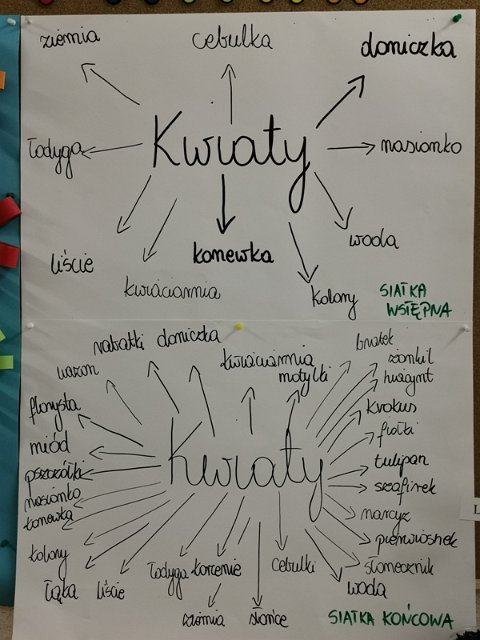 ziemia
cebulka
doniczka
łodyga
Kwiaty
nasionko
liście
konewka
woda
kwiaciarnia
kolory
SIATKA
WSTĘPNA
rabatki
doniczka
kwiaciarnia
bratek
żonkil
wazon
motylki
hiacynt
florysta
krokus
miód
fiołki
Kwiaty
pszczółki
tulipan
nasionko
szafirek
konewka
narcyz
kolory
pierwiosnek
łąka
liście
łodyga
korzenie
cebulki
słonecznik
woda
ziemia
słońce
SIATKA KOŃCOWA